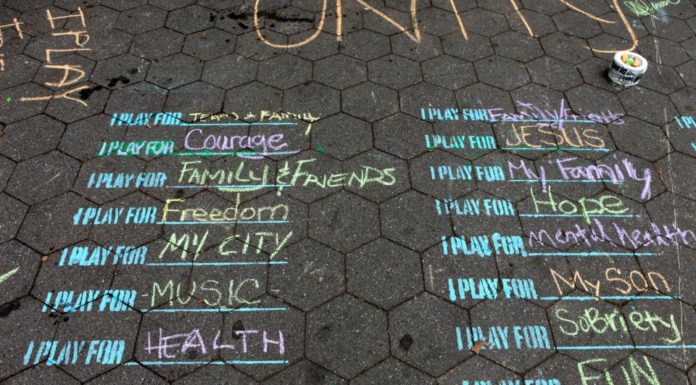 I PLAY
UNITY
I PLAY FOR Teens & Family
I PLAY FOR Courage
I PLAY FOR FAMILY & FRIENDS
I PLAY FOR Freedom
I PLAY FOR MY CITY
I PLAY FOR MUSIC
I PLAY FOR HEALTH
I PLAY FOR Family/
I PLAY FOR JESUS
I PLAY FOR My Family
I PLAY FOR Hope
I PLAY FOR Mental Health
I PLAY FOR My SON
I PLAY FOR SoBriety
I PLAY FOR FUN